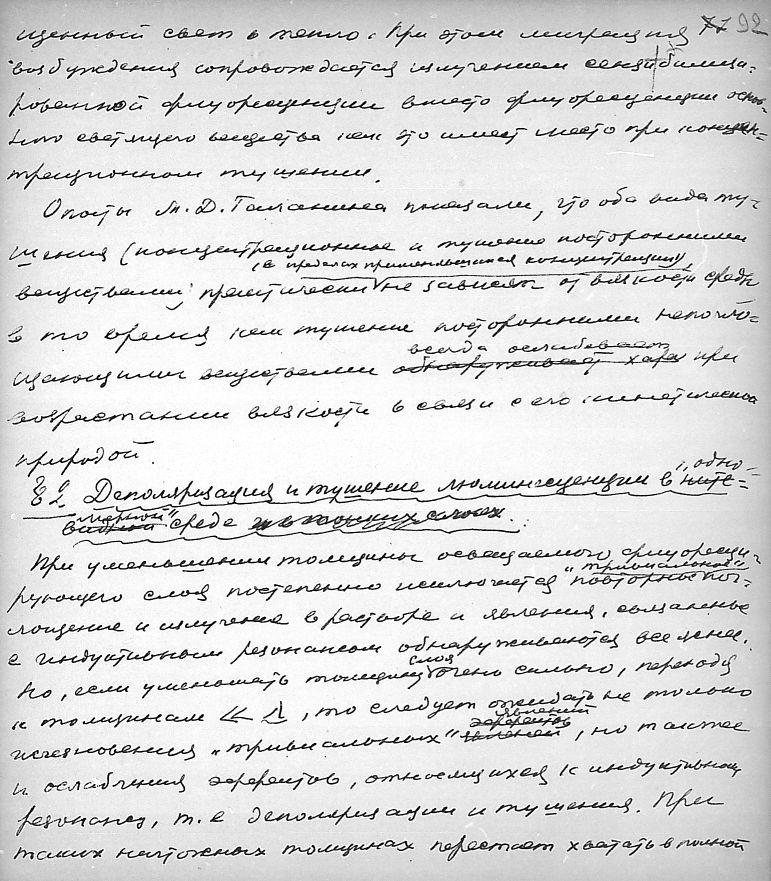 щенный свет в тепло. При этом миграция 77 92
возбуждения сопровождается излучением сенсибилизи-
рованной флуоресценции вместо флуоресценции основ-
ного светящего вещества как это имеет место при концен-
трационном тушении.
Опыты М.Д. Галанина показали, что оба вида ту-
шения (концентрационное и тушение посторонними
(в пределах применявшихся концентраций)
веществами) практически не зависят от вязкости среды
в то время как тушение посторонними непогло-
всегда ослабевает
щающими веществами обнаруживает хара при
возрастании вязкости в связи с его кинетической
природой.
§ 2. Деполяризация и тушение люминесценции в "одно-
мерной" среде
При уменьшении толщины освещаемого флуоресци-
"тривиальное"
рующего слоя постепенно исключается повторное пог-
лощение и излучение в растворе и явления, связанные
с индуктивным резонансом обнаруживаются все яснее.
слоя
Но, если уменьшать толщину очень сильно, переходя
к толщинам ≪ λ, то следует ожидать не только
явлений
исчезновения "тривиальных" эффектов, но также
и ослабления эффектов, относящихся к индуктивному
резонансу, т.е деполяризации и тушения. При
таких ничтожных толщинах перестает хватать в полной